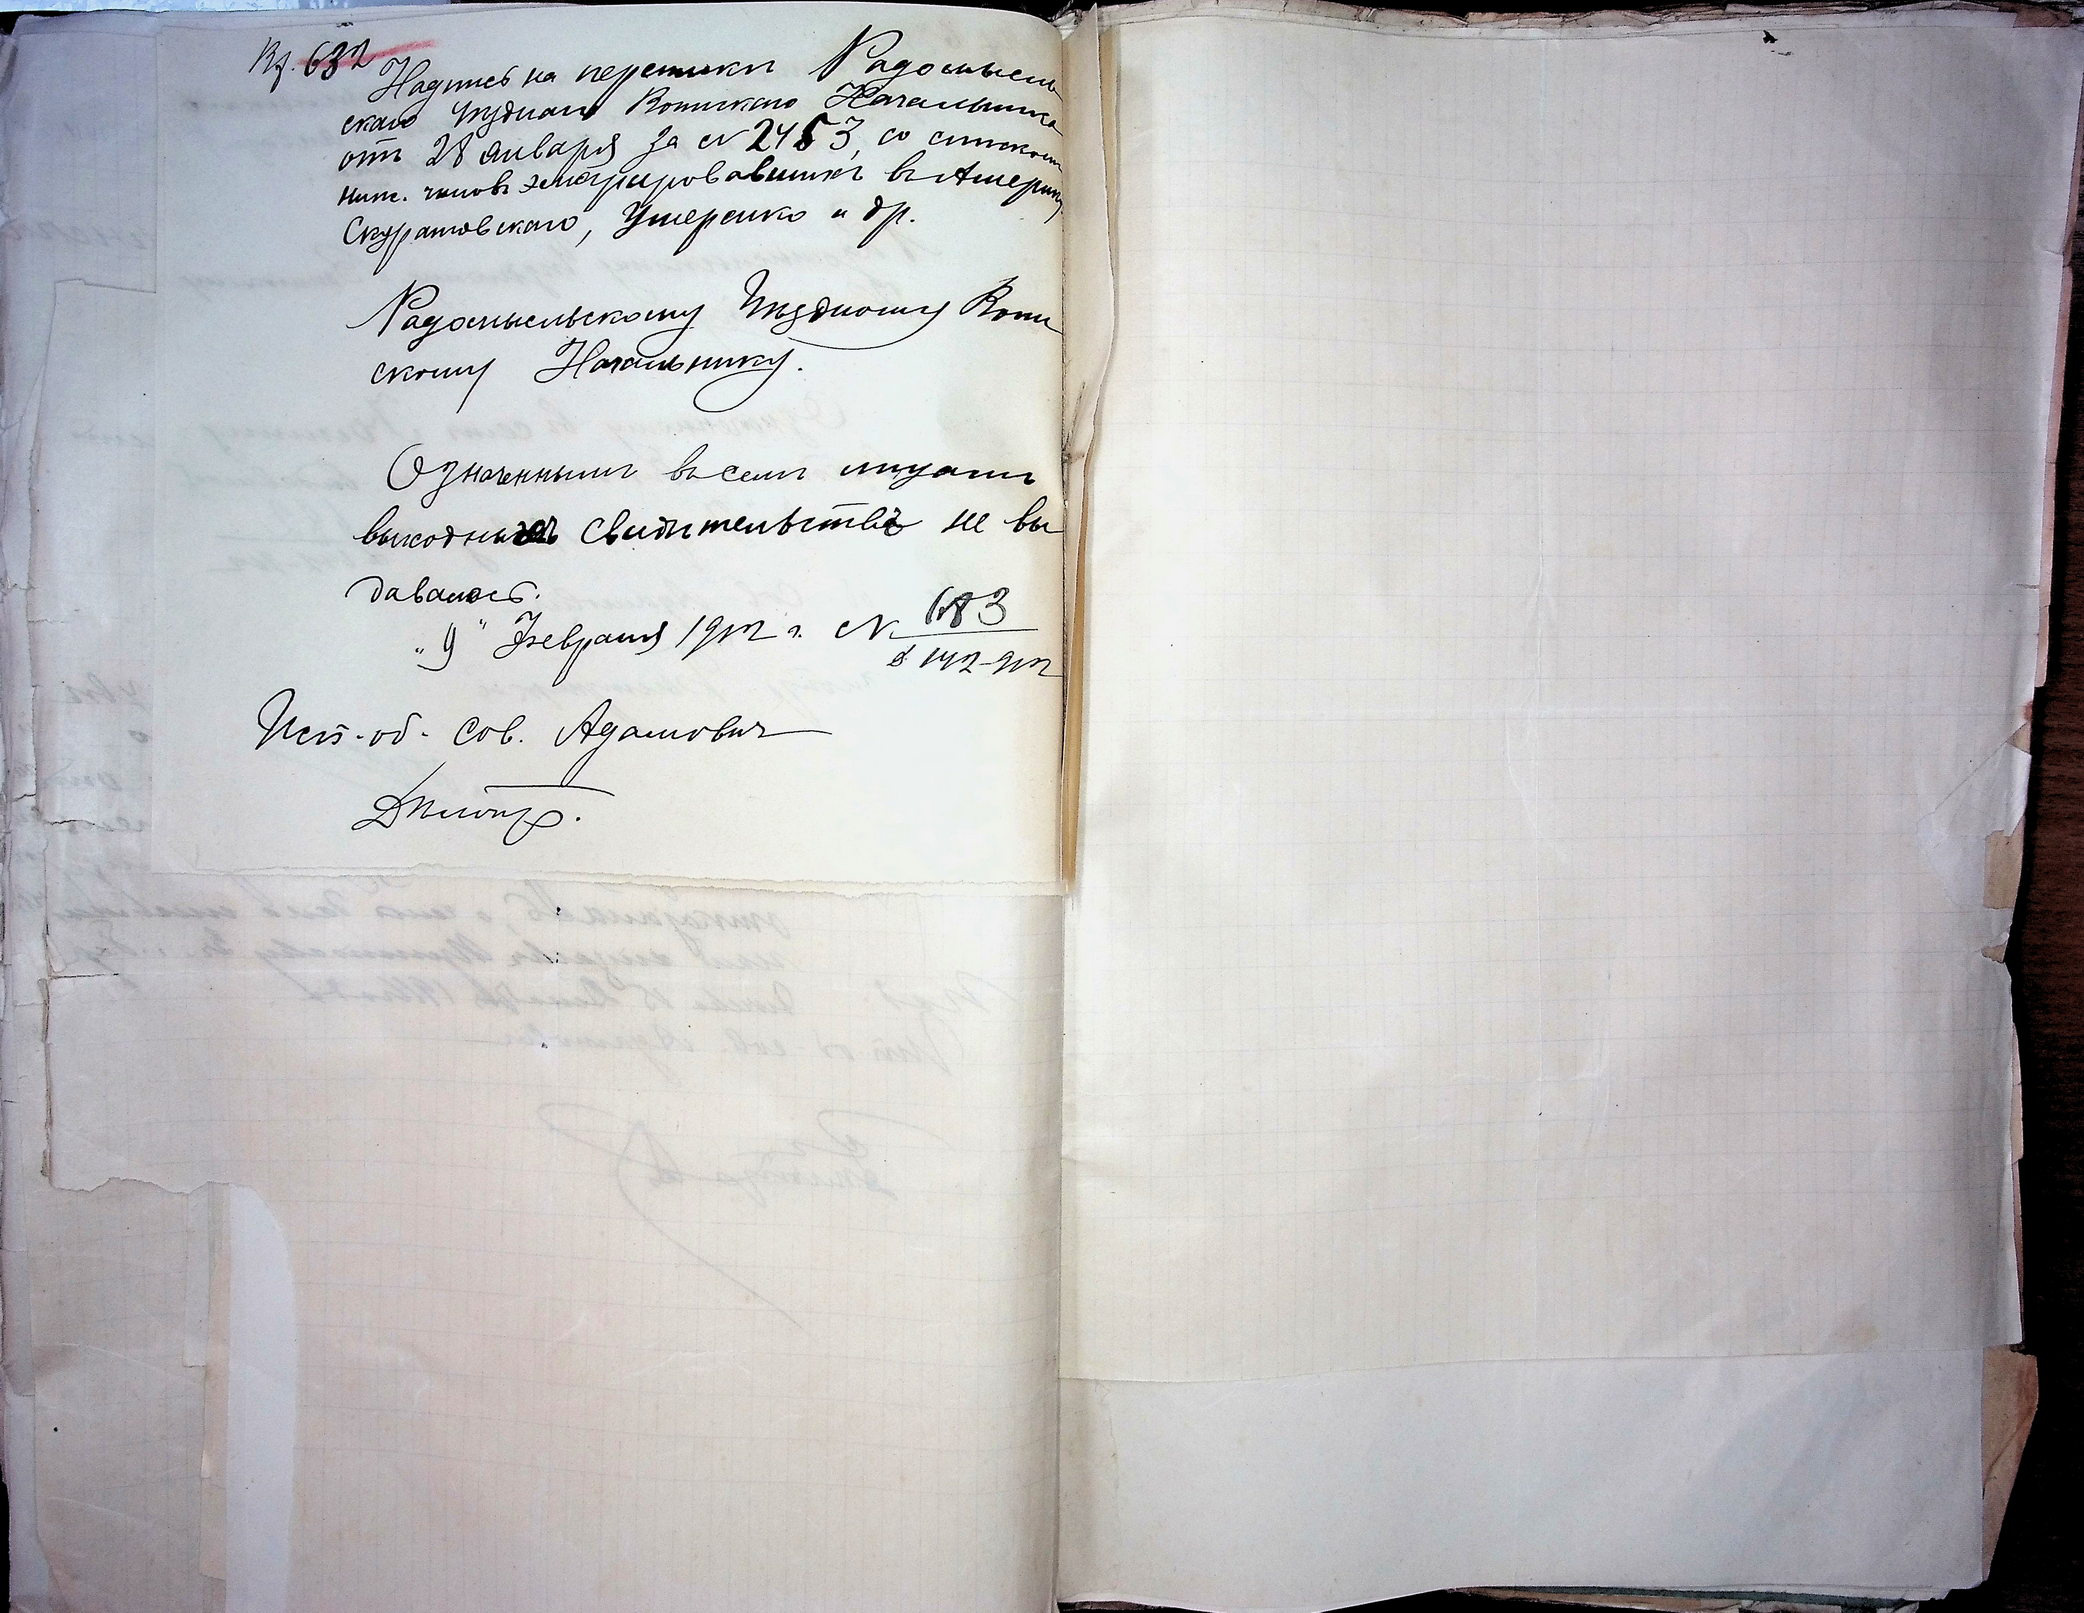 К. 632
Надпись на переписки Радомысль-
скаго Уѣзднаго Воинскаго Начальника
отъ 28 января за № 2453, со спискомъ
ниж. чиновъ эмигрировавшихъ въ Америку
Скуратовскаго, Умеренко и др.
Радомысльскому Уѣздному Воин
скому Начальнику.
Означеннымъ въ семъ лицамъ
выходныхъ свидѣтельствъ не вы
давалось.
"9" Февраля 1912 г. № 683
142-912
Исп. об. сов. Адамович